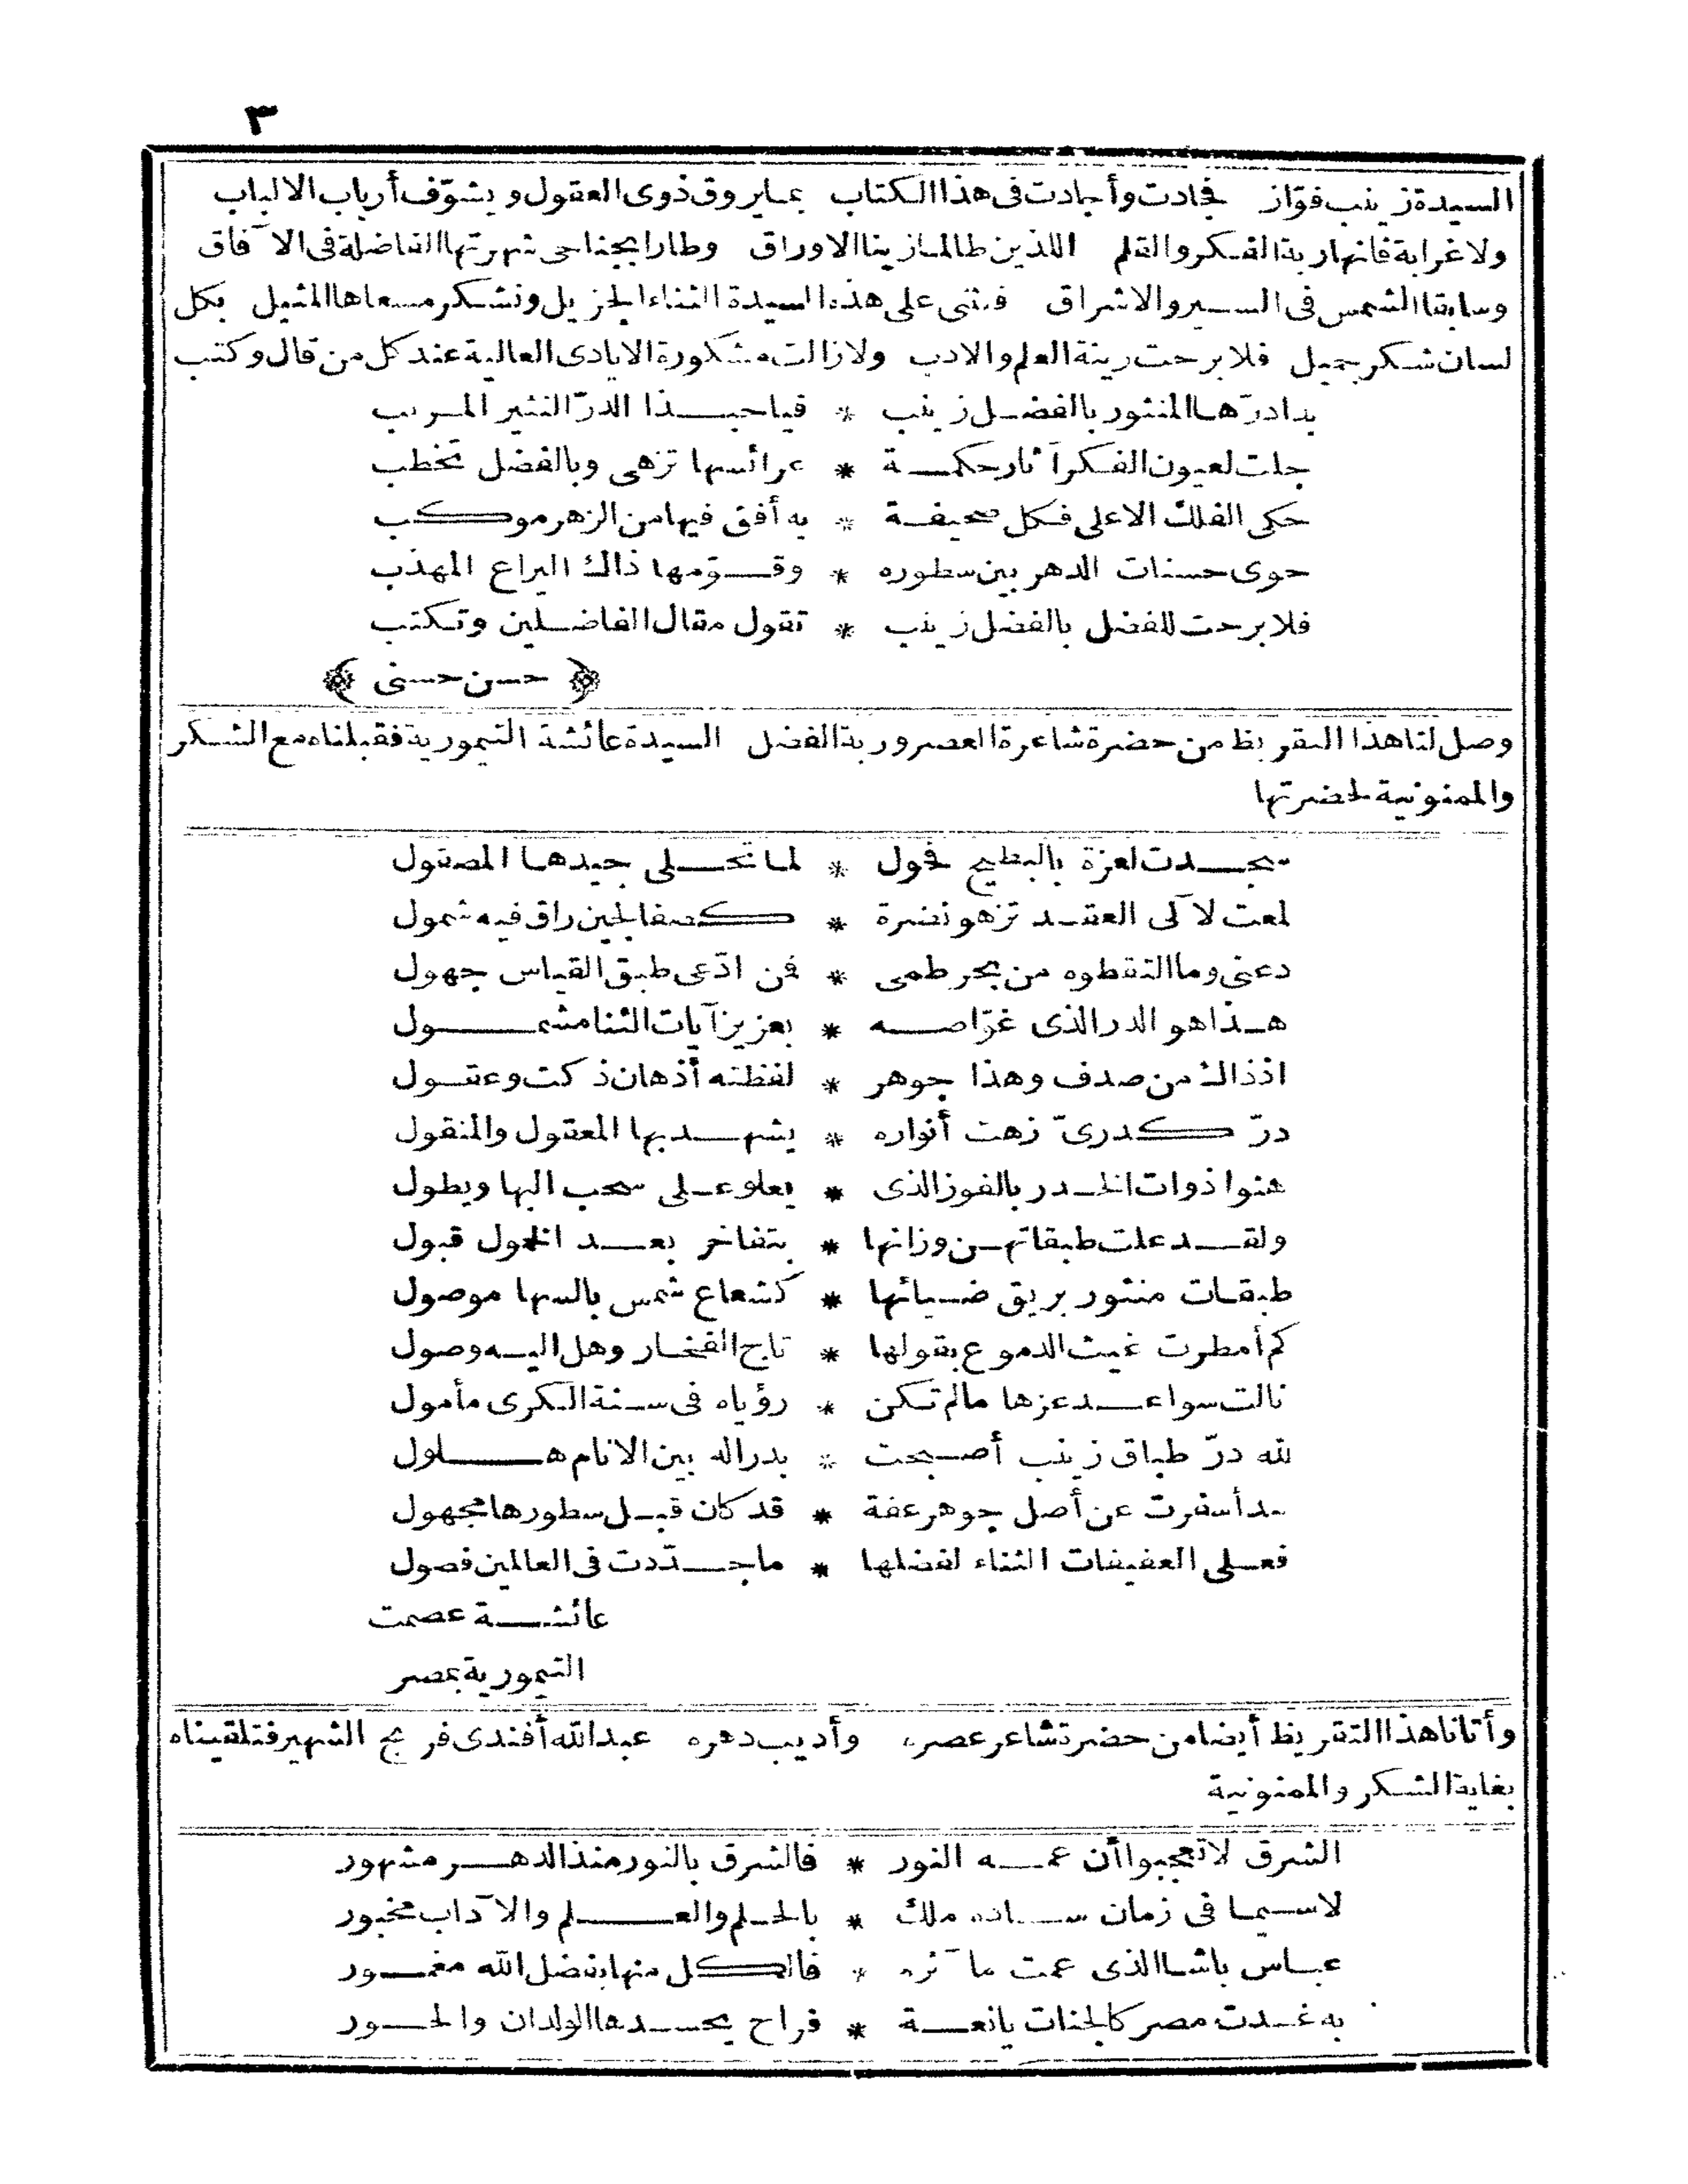 ٣
السيدة زينب فوّاز فجادت وأجادت فى هذا الكتاب بما يروق ذوى العقول ويشوّف أرباب الالباب
ولا غرابة فانها ربة الفكر والقلم اللذين طالما زينا الاوراق وطارا بجناحى شهرتها الفاضلة فى الآفاق
وسابقا الشمس فى السير والاشراق فنثنى على هذه السيدة الثناء الجزيل ونشكر مسعاها المثيل بكل
لسان شكر جميل فلا برحت زينة العلم والادب ولا زالت مشكورة الايادى العالية عند كل من قال وكتب
بدا درّها المنثور بالفضل زينب * فيا حبذا الدرّ النثير المرتب
جلت لعيون الفكر آثار حكمة * عرائسها تزهى وبالفضل تخطب
حكى الفلك الاعلى فكل صحيفة * به أفق فيها من الزهر موكب
حوى حسنات الدهر بين سطوره * وقوّمها ذاك اليراع المهذب
فلا برحت للفضل بالفضل زينب * تقول مقال الفاضلين وتكتب
﴿ حسن حسنى ﴾
وصل لنا هذا التقريظ من حضرة شاعرة العصر وربة الفضل السيدة عائشة التيمورية فقبلناه مع الشكر
والممنونية لحضرتها
سجدت لعزة بالبطيح فحول * لما تحلى جيدها المصقول
لمعت لآلى العقد تزهو نضرة * كصفا لجين راق فيه شمول
دعنى وما التقطوه من بحر طمى * فمن ادّعى طبق القياس جهول
هذا هو الدر الذى غوّاصه * بعزيز آيات الثنا مشمول
اذ ذاك من صدف وهذا جوهر * لفظته أذهان ذكت وعقول
درّ كدرىّ زهت أنواره * يشهد بها المعقول والمنقول
هنوا ذوات الخدر بالفوز الذى * يعلو على سحب البها ويطول
ولقد علت طبقاتهن وزانها * بتفاخر بعد الخمول قبول
طبقات منثور بريق ضيائها * كشعاع شمس بالسها موصول
كم أمطرت غيث الدموع بقولها * تاج الفخار وهل اليه وصول
نالت سواعد عزها مالم تكن * رؤياه فى سنة الكرى مأمول
لله درّ طباق زينب أصبحت * بدرا له بين الانام هلول
مد أسفرت عن أصل جوهر عفة * قد كان قبل سطورها مجهول
فعلى العفيفات الثناء لفضلها * ما جدّدت فى العالمين فصول
عائشة عصمت
التيمورية بمصر
وأتانا هذا التقريظ أيضا من حضرة شاعر عصره وأديب دهره عبد الله أفندى فريج الشهير فتلقيناه
بغاية الشكر والممنونية
الشرق لا تعجبوا أن عمه النور * فالشرق بالنور منذ الدهر مشهور
لاسيما فى زمان ساده ملك * بالحلم والعلم والآداب مخبور
عباس باشا الذى عمت مآثره * فالكل منها بفضل الله مغمور
به غدت مصر كالجنات يانعة * فراح يحسدها الولدان والحور